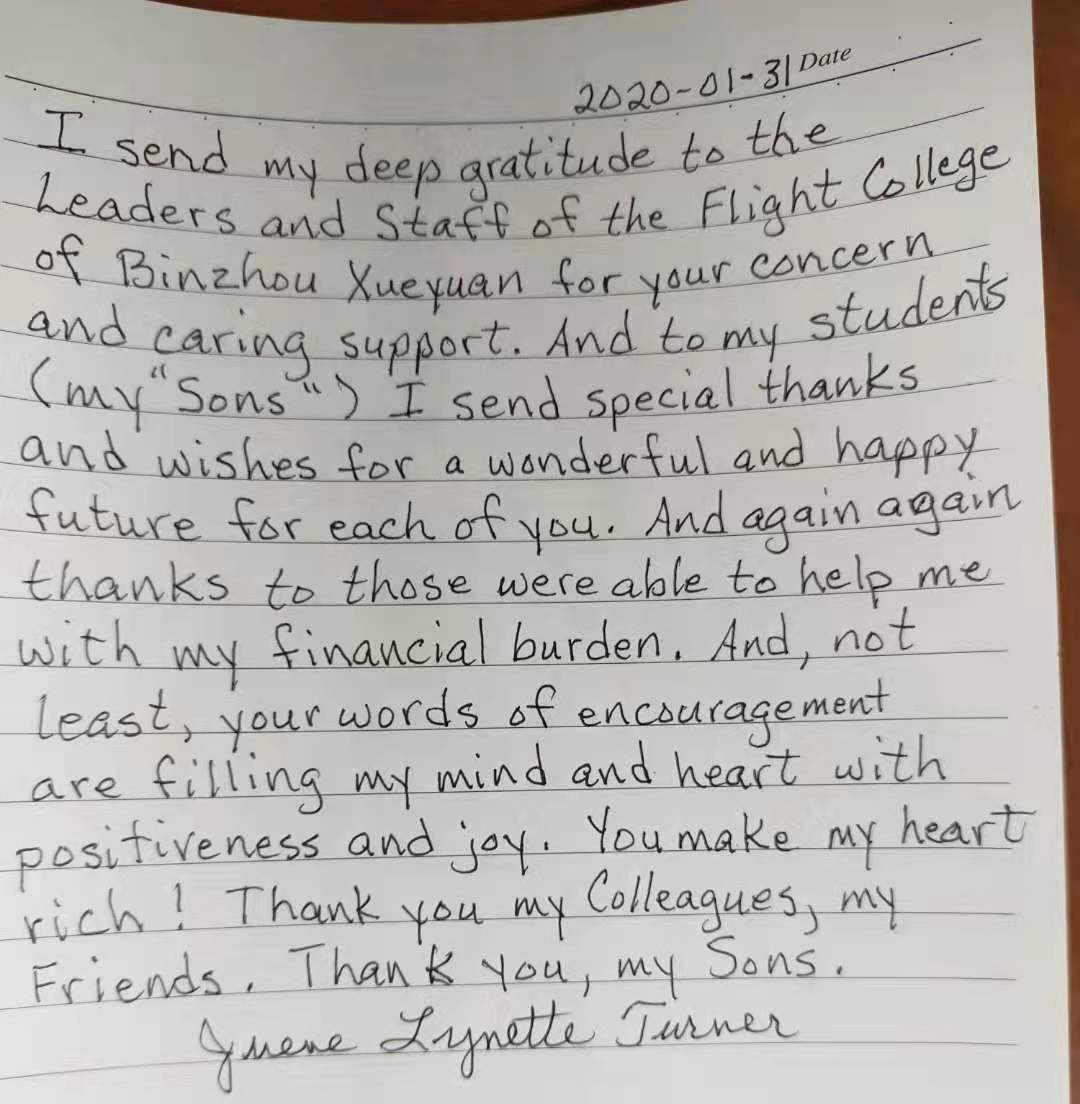 2020-01-31 Date
I send my deep gratitude to the
Leaders and Staff of the Flight College
of Binzhou Xueyuan for your concern
and caring support. And to my students
(my "Sons") I send special thanks
and wishes for a wonderful and happy
future for each of you. And again again
thanks to those were able to help me
with my financial burden. And, not
least, your words of encouragement
are filling my mind and heart with
positiveness and joy. You make my heart
rich! Thank you my Colleagues, my
Friends. Thank you, my Sons.
Lynette Turner